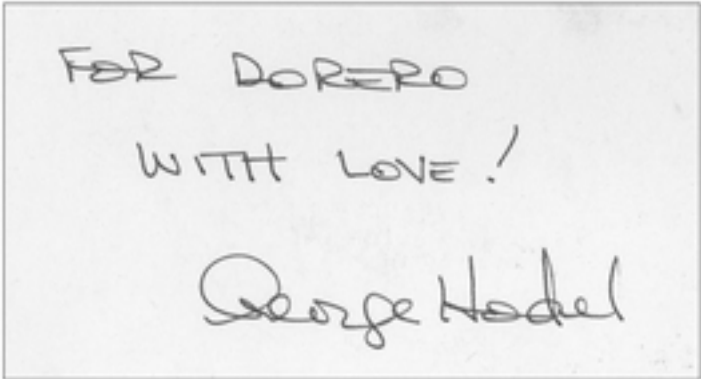 FOR DORERO
WITH LOVE!
George Hodel